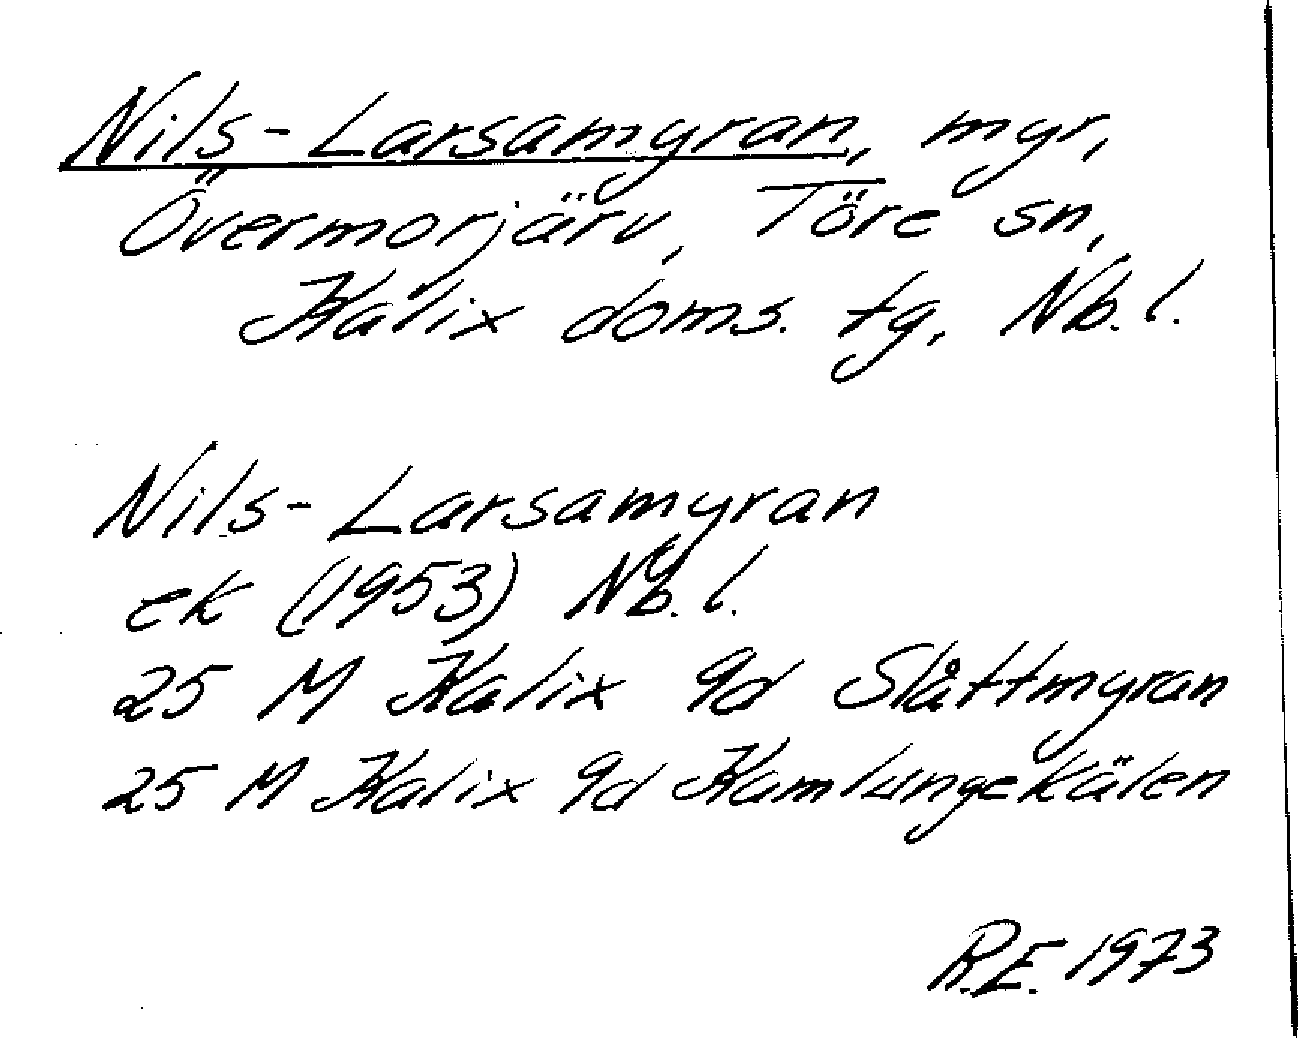 Nils-Larsamyran, myr,
Övermorjärv, Töre sn,
Kalix doms. tg, Nb. l.
Nils-Larsamyran
ek (1953) Nb. l.
25 M Kalix 9d Slåttmyran
25 M Kalix 9d Kamlungekälen
R.E. 1973